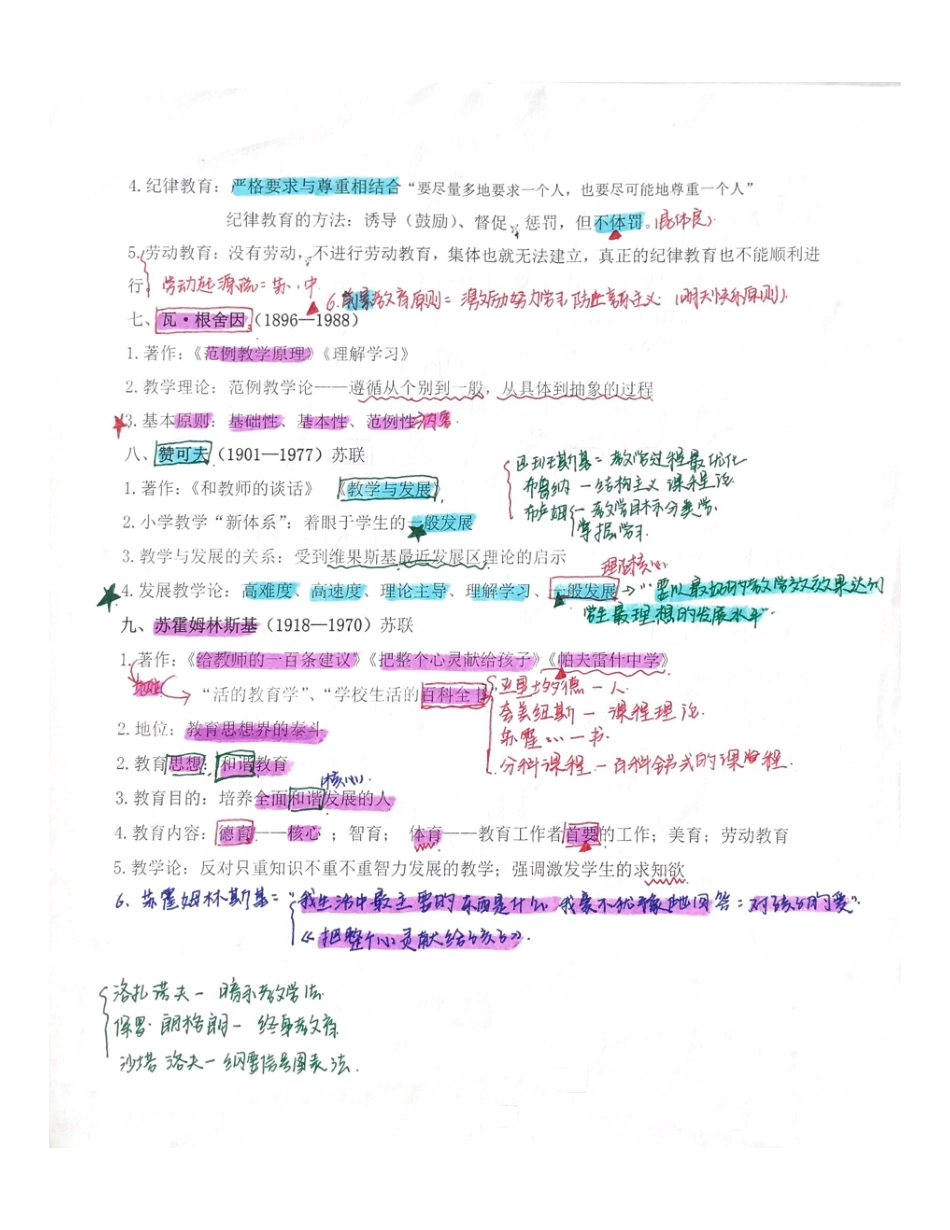 4.纪律教育：严格要求与尊重相结合“要尽量多地要求一个人，也要尽可能地尊重一个人”
纪律教育的方法：诱导（鼓励）、督促、惩罚，但不体罚。
5.劳动教育：没有劳动，不进行劳动教育，集体也就无法建立，真正的纪律教育也不能顺利进
行。劳动起源说=苏、中
6.前景教育原则=激励努力学习 防止 主义（明天快乐原则）.
七、瓦·根舍因（1896—1988）
1.著作：《范例教学原理》《理解学习》
2.教学理论：范例教学论——遵循从个别到一般，从具体到抽象的过程
3.基本原则：基础性、基本性、范例性→内容.
八、赞可夫（1901—1977）苏联
1.著作：《和教师的谈话》 《教学与发展》
2.小学教学“新体系”：着眼于学生的一般发展
巴班斯基=教学过程最优化
布鲁纳 一结构主义 课程论.
布卢姆 一教学目标分类学.
掌握学习.
3.教学与发展的关系：受到维果斯基最近发展区理论的启示
理论核心
4.发展教学论：高难度、高速度、理论主导、理解学习、一般发展→“要以最好的教学效果达到
学生最理想的发展水平”.
九、苏霍姆林斯基（1918—1970）苏联
1.著作：《给教师的一百条建议》《把整个心灵献给孩子》《帕夫雷什中学》
“活的教育学”、“学校生活的百科全书”
亚里士多德 一 人.
夸美纽斯 一 课程理论.
苏霍... 一书.
分科课程.一百科全书式的课程.
2.地位：教育思想界的泰斗
2.教育思想：和谐教育
（核心）.
3.教育目的：培养全面和谐发展的人
4.教育内容：德育——核心 ；智育； 体育——教育工作者首要的工作；美育；劳动教育
5.教学论：反对只重知识不重不重智力发展的教学；强调激发学生的求知欲
6. 苏霍姆林斯基=“我生活中最主要的东西是什么 我毫不犹豫地回答：对孩子的爱”.
《把整个心灵献给孩子》.
洛扎诺夫一 暗示教学法.
保罗·朗格朗一 终身教育.
沙塔洛夫一纲要信号图表法.